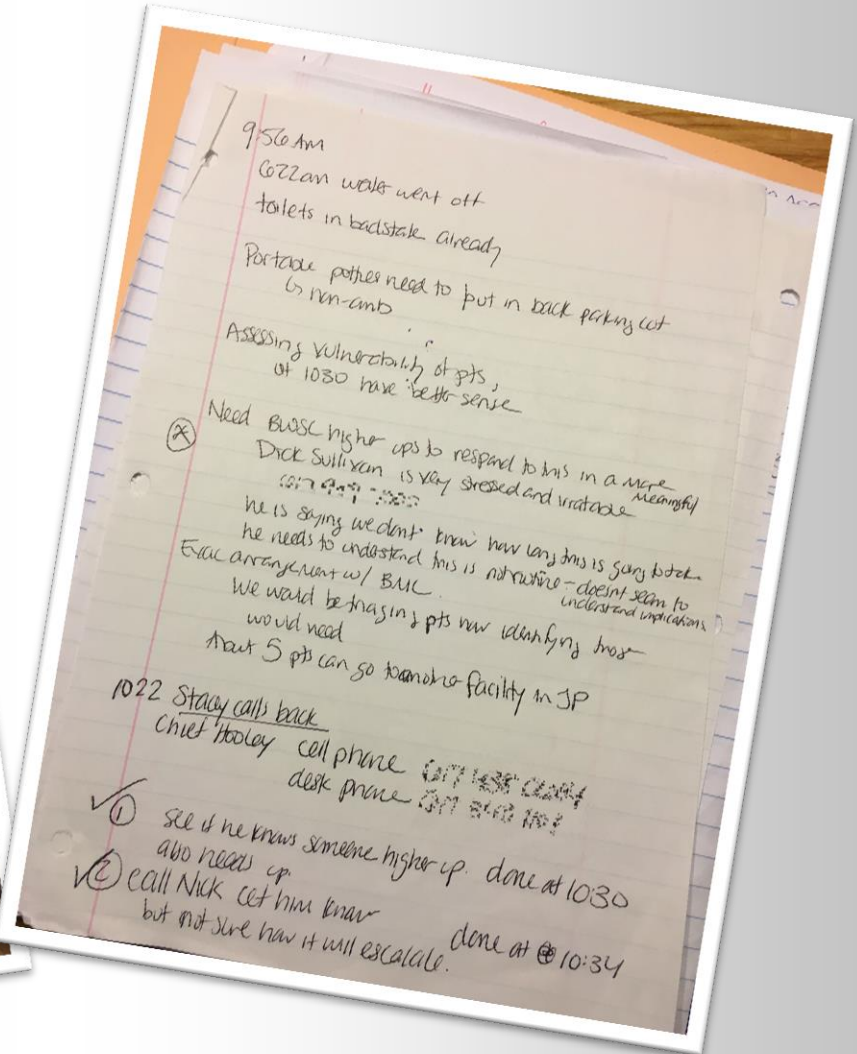 9:56 AM
water went off
toilets in bad state already
Portable potties need to put in back parking lot
↳ non-amb
Assessing vulnerability of pts,
at 1030 have better sense
Need BWSC higher ups to respond to this in a more
meaningful
Dick Sullivan is very stressed and irratable
617
he is saying we dont know how long this is going to take
he needs to understand this is not routine - doesnt seem to
understand implications
Evac arrangement w/ BMC.
We would be triaging pts now identifying those
would need
About 5 pts can go to another facility in JP
1022 Stacy calls back
Chief Hooley cell phone 617
desk phone 617
✓① see if he knows someone higher up. done at 1030
also heads up.
✓② call Nick let him know
but not sure how it will escalate. done at 10:34